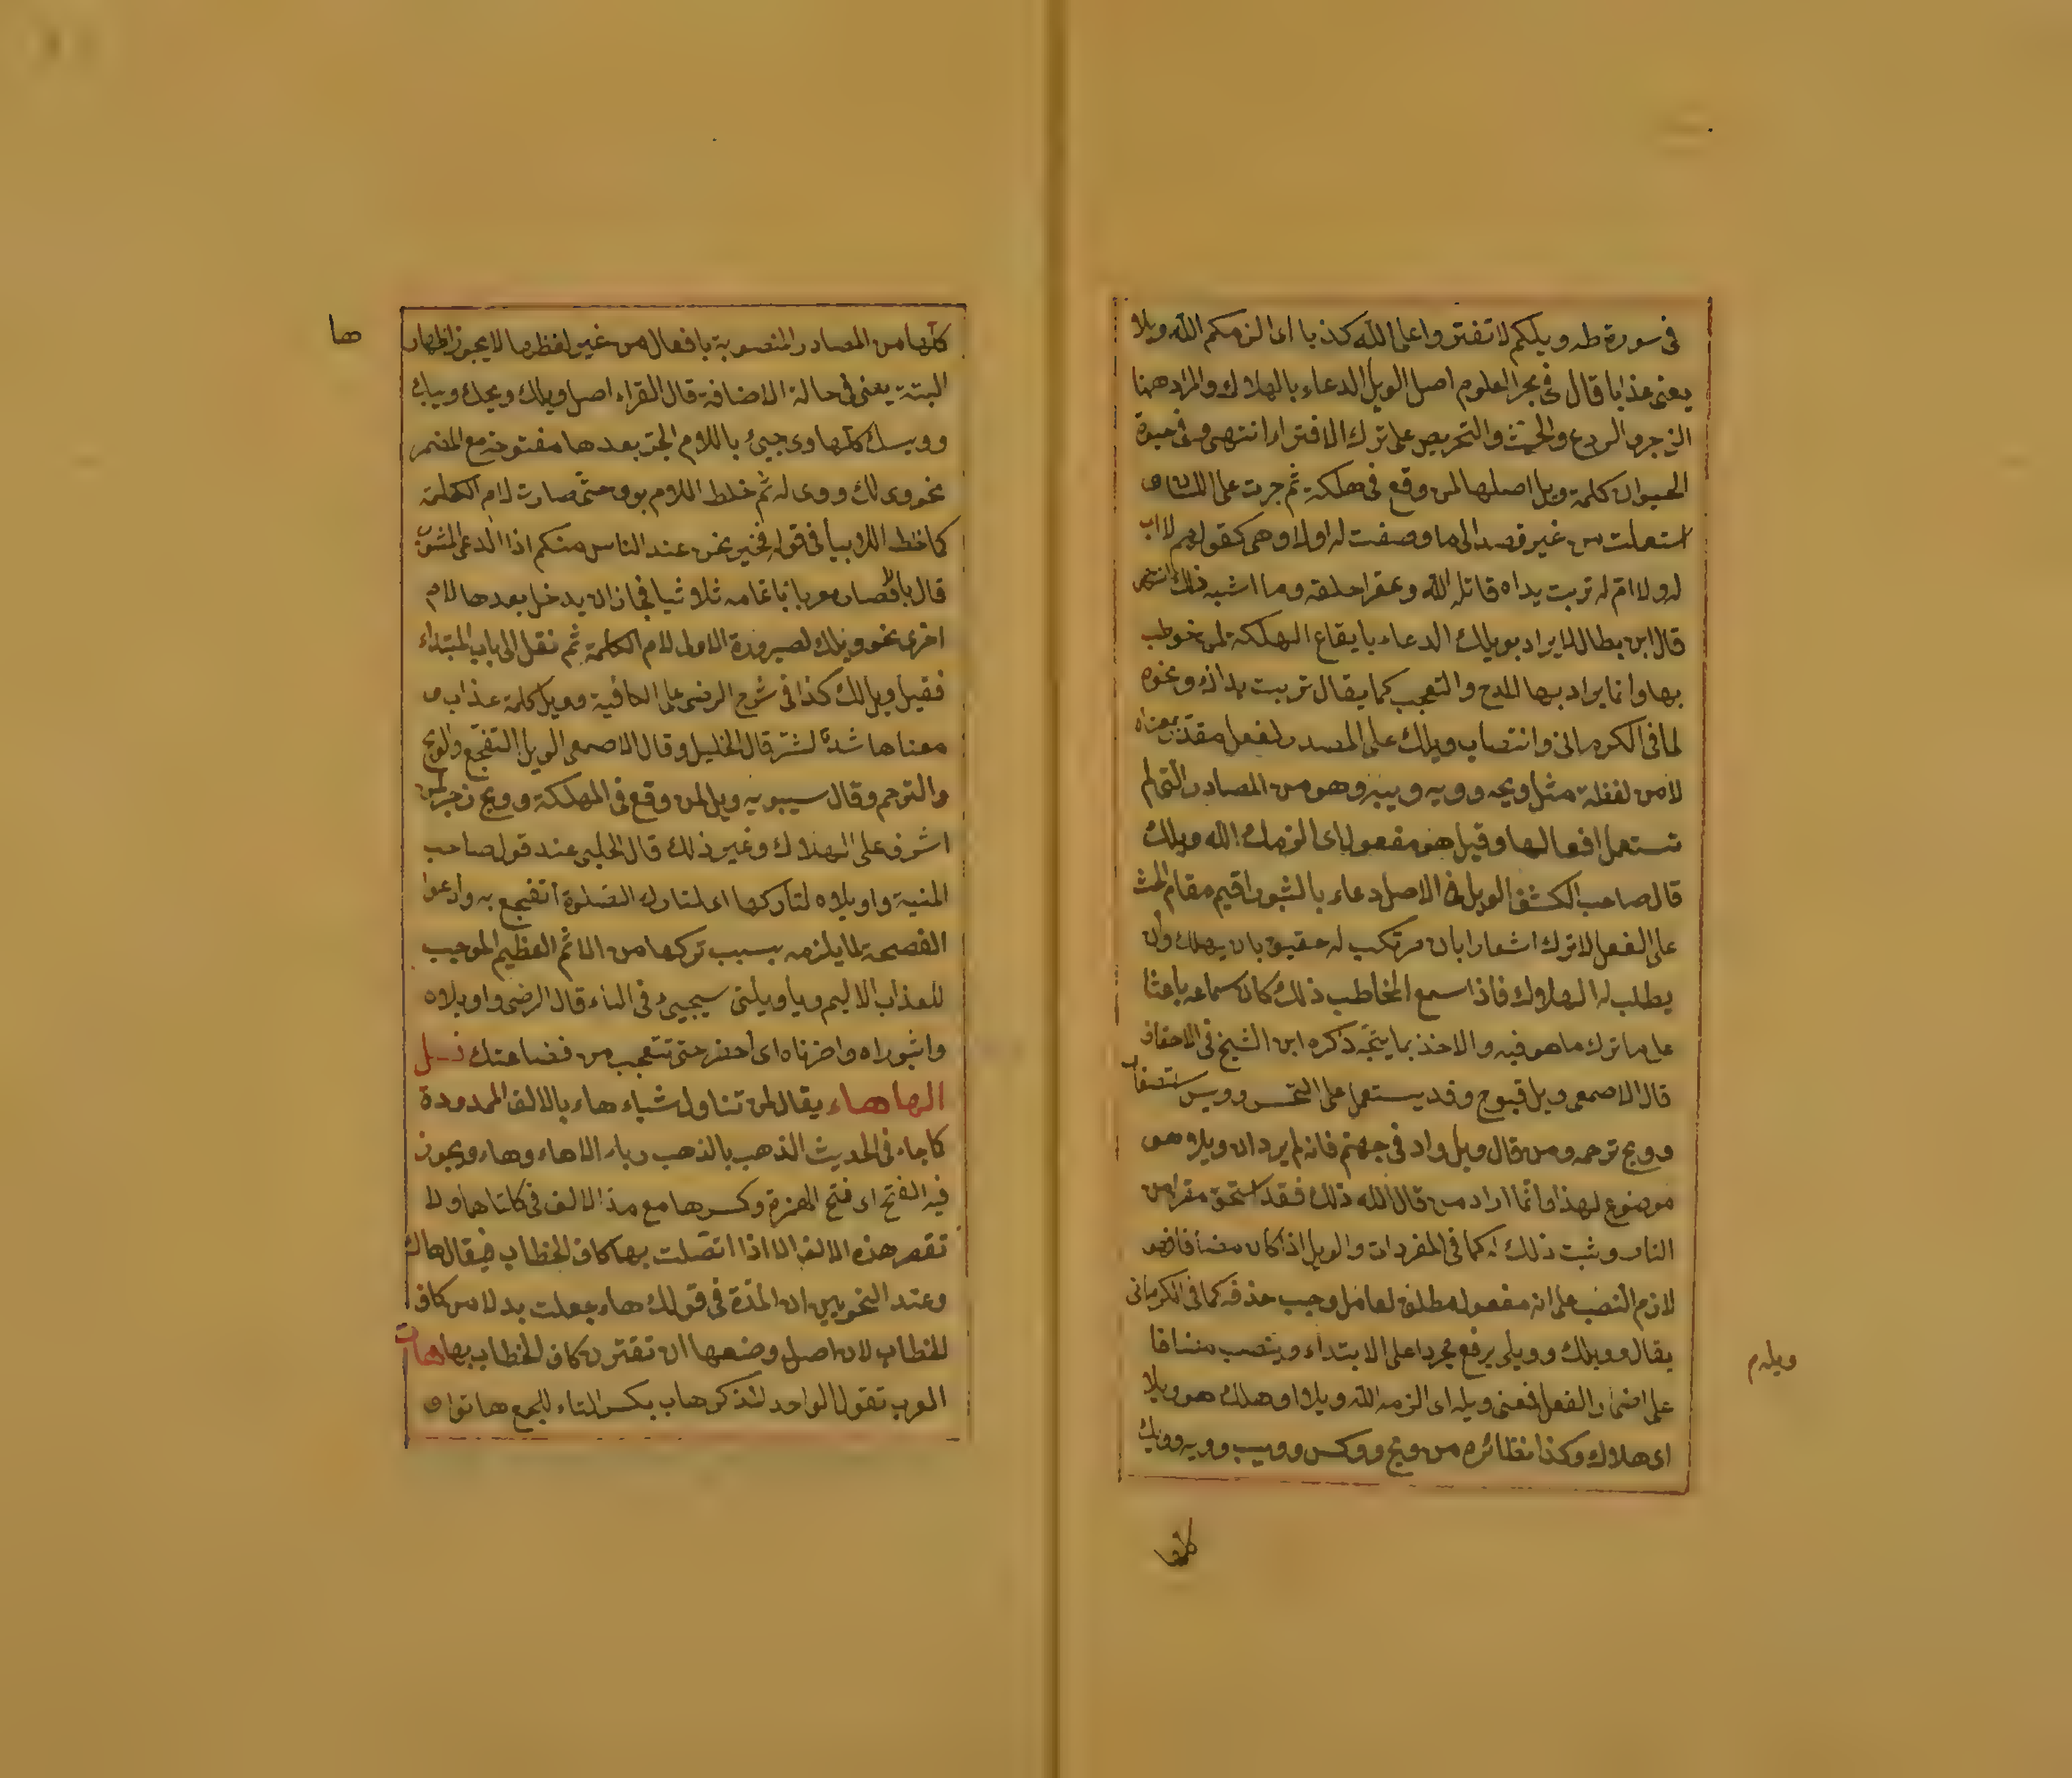 فى سورة طه ويلكم لا تفتروا على الله كذبا اى الزمكم الله ويلا
يعنى عذابا قال فى بحر العلوم اصل الويل الدعاء بالهلاك والمراد ههنا
الزجر والردع والحث والتحريص على ترك الافتراء انتهى وفى حيوة
الحيوان كلمة ويل اصلها لمن وقع فى هلكة ثم جرت على اللسان و
استعملت من غير قصد الى ما وصفت له اولا وهى كقولهم لا اب
له ولا ام له تربت يداه قاتله الله وعقرا حلقه وما اشبه ذلك انتهى
قال ابن بطال لا يراد بويلك الدعاء بايقاع الهلكة لمن خوطب
بها وانما يراد بها المدح والتعجب كما يقال تربت يداك ونحوه
لما فى الكرمانى وانتصاب ويلك على المصدر لفعل مقدر بمعناه
لا من لفظه مثل ويحه وويه وويبه وهو من المصادر التى لم
تستعمل افعالها وقيل هو مفعول اى الزمك الله ويلك
قال صاحب الكشف الويل فى الاصل دعاء بالثبور اقيم مقام الحث
على الفعل لا ترك اشعارا بان مرتكب له حقيق بان يهلك وان
يطلب له الهلاك فاذا سمع المخاطب ذلك كان سماعه باعثا
على ما ترك ما هو فيه والاخذ بما ذكره ابن الشيخ فى الاحقاف
قال الاصمعى ويل قبوح وقد يستعمل على التحسر وويس استصغار
وويح ترحم ومن قال ويل واد فى جهنم فانه لم يرد ان ويلا هو
موضوع لهذا وانما اراد من قال الله ذلك فقد استحق مقرا من
النار وثبت ذلك له كما فى المفردات والويل اذا كان مضافا فهو
لازم النصب على انه مفعول مطلق لعامل وجب حذفه كما فى الكرمانى
يقال وويلك وويلى يرفع مجردا على الابتداء وينصب مضافا
على اضمار الفعل فمعنى ويله اى الزمه الله ويلا او هلك هو ويلا
اى هلاك وكذا نظائره من ويح وويس وويب وويه وويك
ويله م
كلها
ها
كلها من المصادر المنصوبة بافعال من غير لفظها لا يجوز اظهار
البتة يعنى فى حالة الاضافة قال الفراء اصل ويلك ويحك ويبك
وويسك كلها وى جيئ باللام الجر بعدها مفتوحة مع المضمر
نحو وى لك ووى له ثم خلط اللام بوى حتى صارت لام الكلمة
كما خلط اللام بيا فى قوله فخير نحن عند الناس منكم اذا الداعى المثوب
قال يالا فصار معربا باتمامه ثلاثيا فجاز ان يدخل بعدها لام
اخرى نحو ويلك لصيرورة الاول لام الكلمة ثم نقل الى باب المبتداء
فقيل ويل لك كذا فى شرح الرضى على الكافية وويل كلمة عذاب و
معناها شدة لشر قال الخليل وقال الاصمعى الويل التفجع والويح
والترحم وقال سيبويه ويل لمن وقع فى المهلكة وويح زجر لمن
اشرف على الهلاك وغير ذلك قال الحلبى عند قول صاحب
المنية واويلاه لتاركها اى لتارك الصلوة أتفجع به وادعوا
الفصحة لما يلزمه بسبب تركها من الاثم العظيم الموجب
للعذاب الاليم ويا ويلتى سيجيئ فى الياء قال الرضى واويلاه
واثبوراه واحزناه اى أحضر حتى نتعجب من فضاعتك
الها هاء يقال لمن تناول شياء هاء بالالف الممدودة
كما جاء فى الحديث الذهب بالذهب رباء الا هاء وهاء ويجوز
فيه الفتح اى فتح الهمزة وكسرها مع مد الالف فى كلتاهما ولا
تقصر هذه الالف الا اذا اتصلت بها كاف الخطاب فيقال هاك
وعند النحويين ان المدة فى قولك هاء جعلت بدلا من كاف
الخطاب لان اصل وضعها ان تقترن كاف الخطاب بها هات
العرب تقول الواحد المذكر هات بكسر التاء للجمع هاتوا و